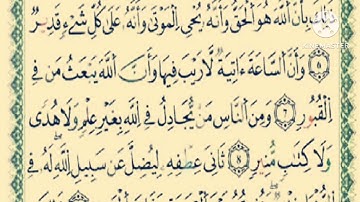 ذَٰلِكَ بِأَنَّ ٱللَّهَ هُوَ ٱلْحَقُّ وَأَنَّهُۥ يُحْيِ ٱلْمَوْتَىٰ وَأَنَّهُۥ عَلَىٰ كُلِّ شَےْءٖ قَدِيرٌ
وَأَنَّ ٱلسَّاعَةَ ءَاتِيَةٌ لَّا رَيْبَ فِيهَا وَأَنَّ ٱللَّهَ يَبْعَثُ مَن فِے
ٱلْقُبُورِ وَمِنَ ٱلنَّاسِ مَنْ يُّجَٰدِلُ فِے ٱللَّهِ بِغَيْرِ عِلْمٖ وَلَا هُدىٗ
وَلَا كِتَٰبٖ مُّنِيرٖ ثَانِيَ عِطْفِهِۦ لِيُضِلَّ عَن سَبِيلِ ٱللَّهِ لَهُۥ فِے